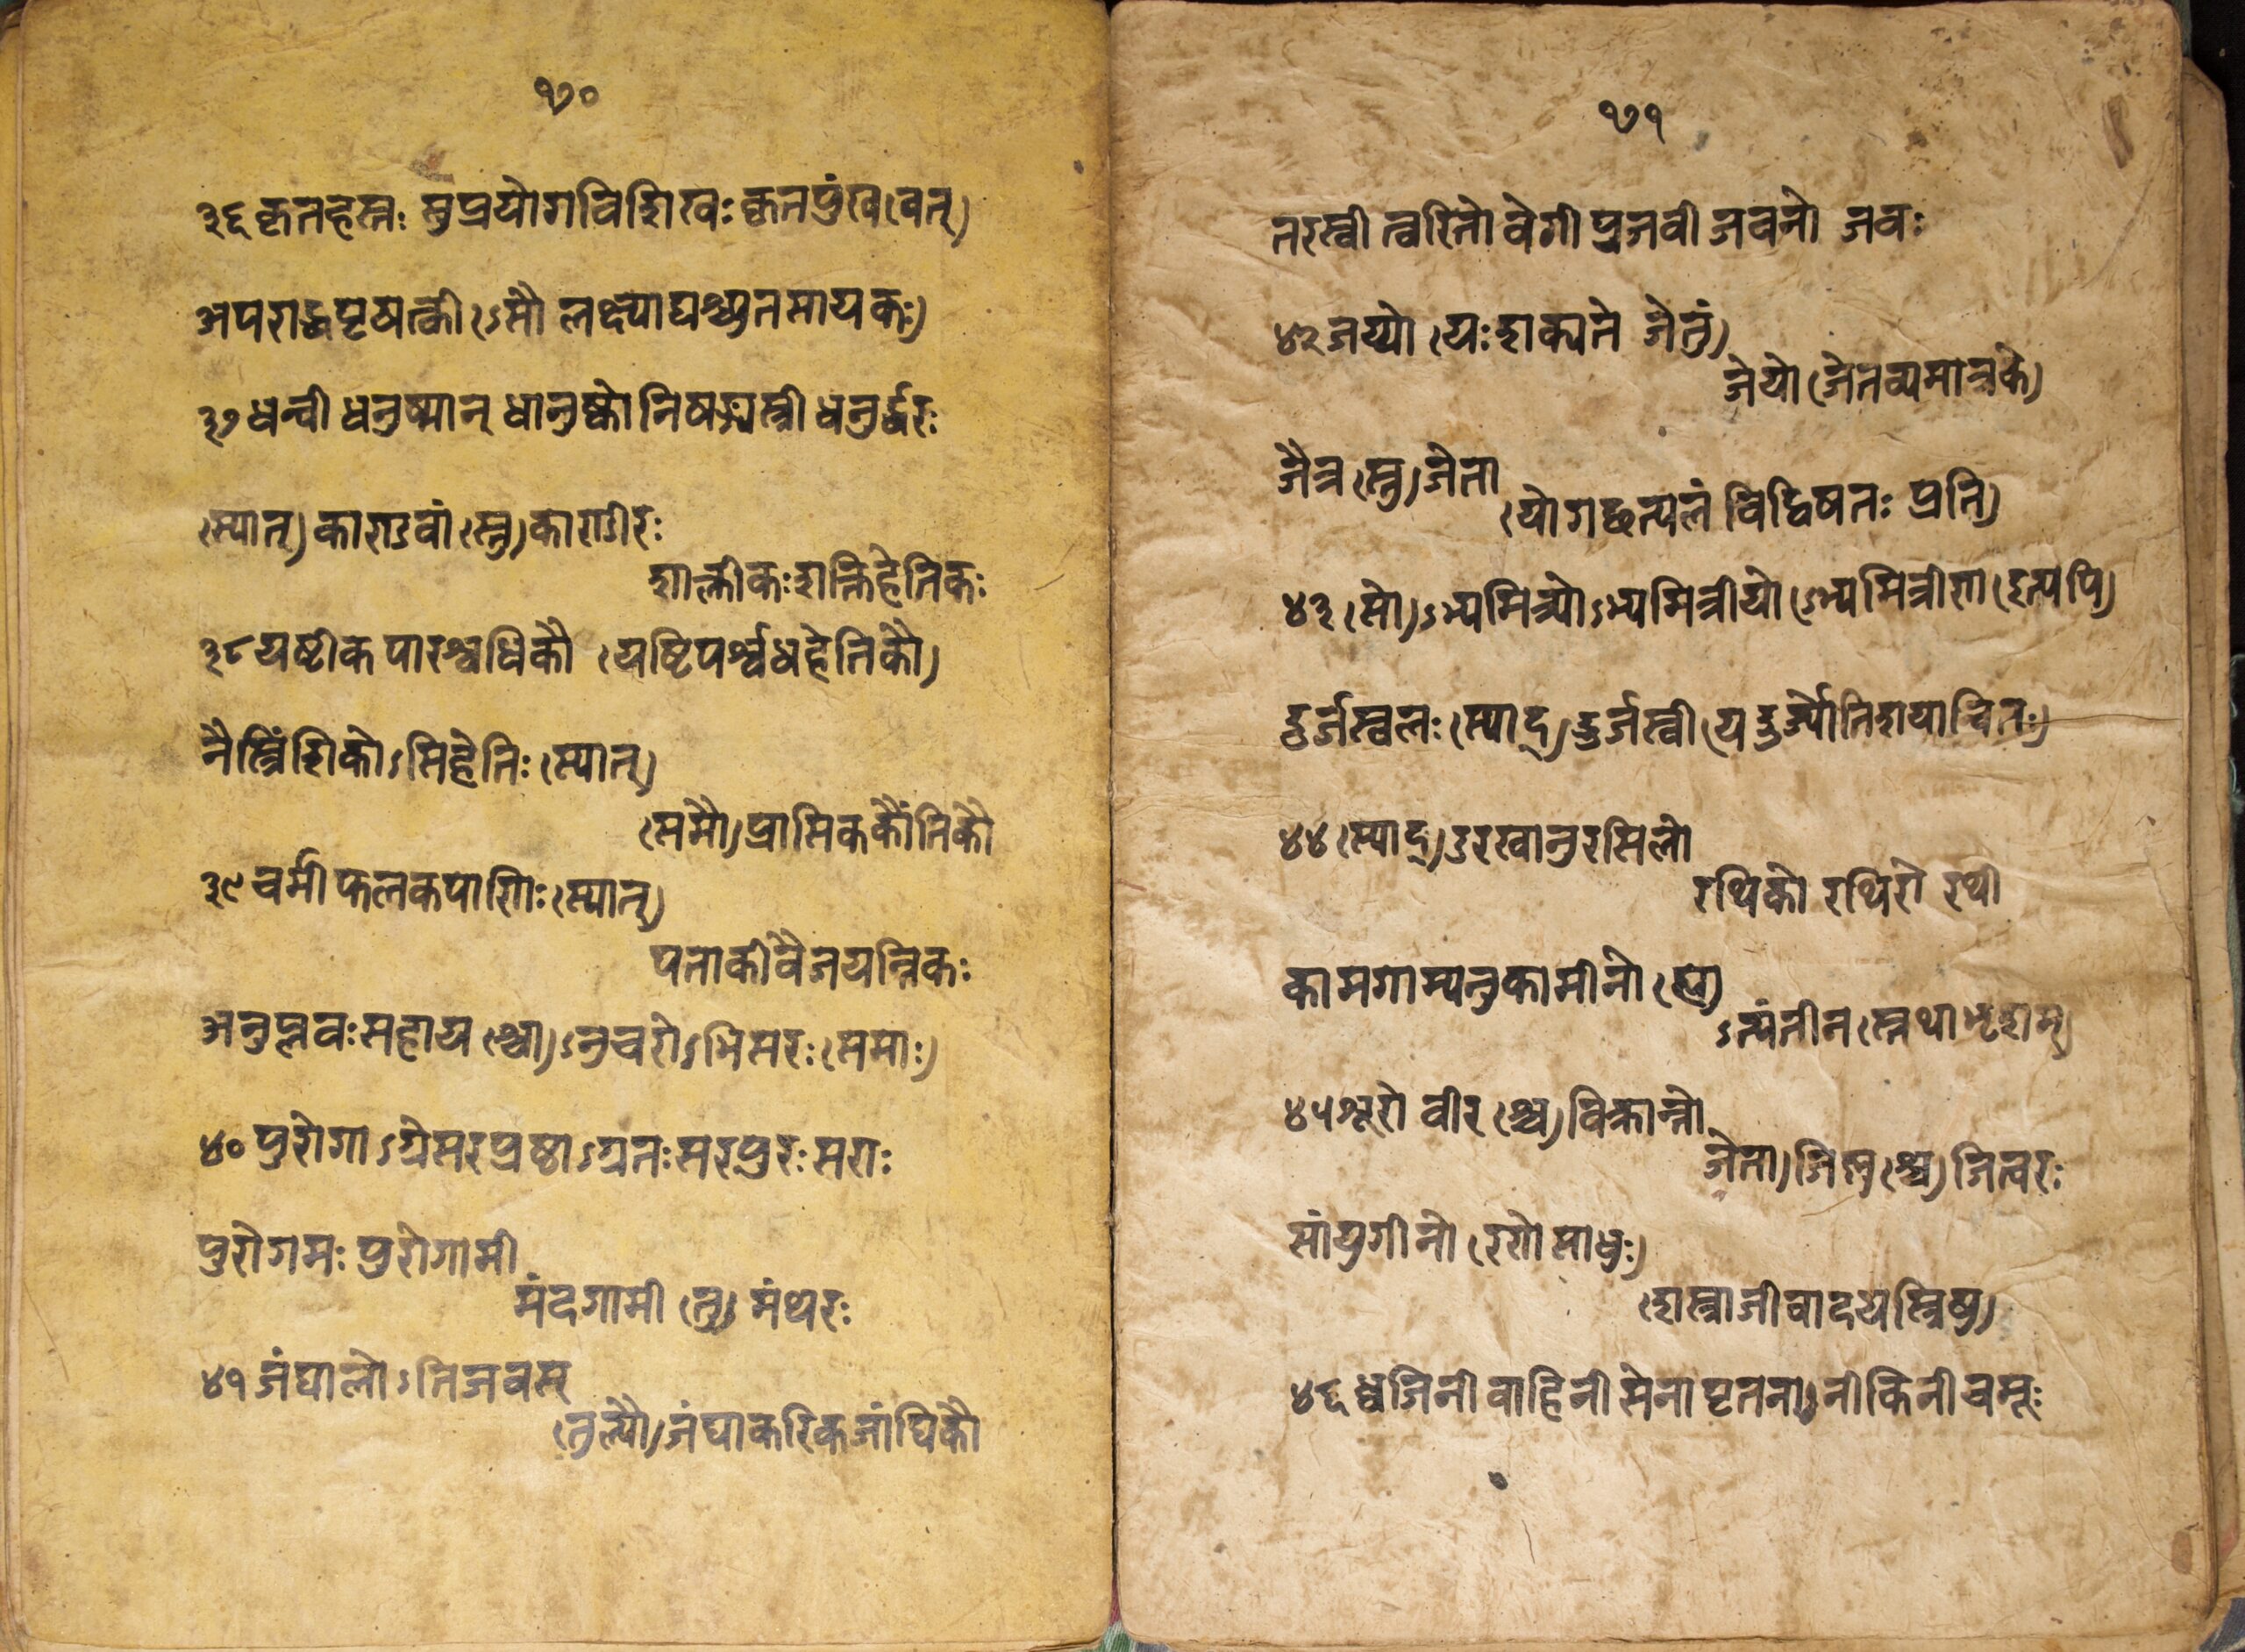 १७०
३६ कृतहस्तः सुप्रयोगविशिखः कृतपुंख (वत्)
अपराद्धपृषत्को ऽसौ लक्ष्याद्यश्च्युतसायकः)
३७ धन्वी धनुष्मान् धानुष्को निषङ्ग्यस्त्री धनुर्द्धरः
(स्यात्) काण्डवां (स्तु) काण्डीरः
शाक्तीकः शक्तिहेतिकः
३८ यष्टीक पारश्वधिकौ (यष्टिपर्श्वधहेतिकौ)
नैस्त्रिंशिको ऽसिहेतिः (स्यात्)
(समौ) प्रासिककौंतिकौ
३९ चर्मी फलकपाणिः (स्यात्)
पताकी वैजयन्तिकः
अनुप्लवः सहाय (श्चा) ऽनुचरो ऽभिसरः (समाः)
४० पुरोगा ऽग्रेसरप्रष्ठा ऽग्रतः सरपुरः सराः
पुरोगमः पुरोगामी
मंदगामी (तु) मंथरः
४१ जंघालो ऽतिजवस्
(तुल्यौ) जंघाकरिकजांघिकौ
१७१
तरस्वी त्वरितो वेगी प्रजवी जवनो जवः
४२ जय्यो (यः शक्यते जेतुं)
जेयो (जेतव्यमात्रके)
जैत्र (स्तु) जेता
(यो गच्छत्यलं विद्विषतः प्रति)
४३ (सो) ऽभ्यमित्र्यो ऽभ्यमित्रीयो ऽभ्यमित्रीणा (इत्यपि)
ऊर्जस्वलः (स्याद्) ऊर्जस्वी (य ऊर्ज्जोतिशयान्वितः)
४४ (स्याद्) उरस्वानुरसिलो
रथिको रथिरो रथी
कामगाम्यनुकामीनो (ह्य)
ऽत्यंतीन स्तथा भृशम्)
४५ शूरो वीर (श्च) विक्रान्तो
जेता) जिष्णु (श्च) जित्वरः
सांयुगीनो (रणे साधुः)
(शस्त्राजीवादयस्त्रिषु)
४६ ध्वजिनी वाहिनी सेना पृतना ऽनीकिनी चमूः